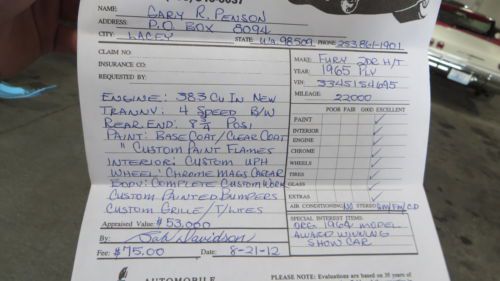 NAME: GARY R. PENSON
ADDRESS: P.O. BOX 8094
CITY: LACEY STATE: Wa 98509 PHONE: 253 861-1901
CLAIM NO.
INSURANCE CO:
REQUESTED BY:
MAKE: FURY 2DR H/T
YEAR: 1965 PLY
VIN: 3345154695
MILEAGE: 22000
POOR FAIR GOOD EXCELLENT
PAINT
INTERIOR
ENGINE
CHROME
WHEELS
TIRES
GLASS
EXTRAS
AIR CONDITIONING NO STEREO AM/FM/CD
ENGINE: 383 Cu In NEW
TRANNY: 4 SPEED B/W
REAR END: 8 3/4 POSI
PAINT: BASE COAT/CLEAR COAT
" CUSTOM PAINT FLAMES
INTERIOR: CUSTOM UPH
WHEEL: CHROME MAGS CRAGAR
BODY: COMPLETE CUSTOM WORK
CUSTOM PAINTED BUMPERS
CUSTOM GRILLE/T/LITES
Appraised Value: $53,000
By: Davidson
Fee: $75.00 Date: 8-21-12
SPECIAL INTEREST ITEMS:
ORG. 1964 MODEL
AWARD WINNING
SHOW CAR
AUTOMOBILE
PLEASE NOTE: Evaluations are based on 35 years of